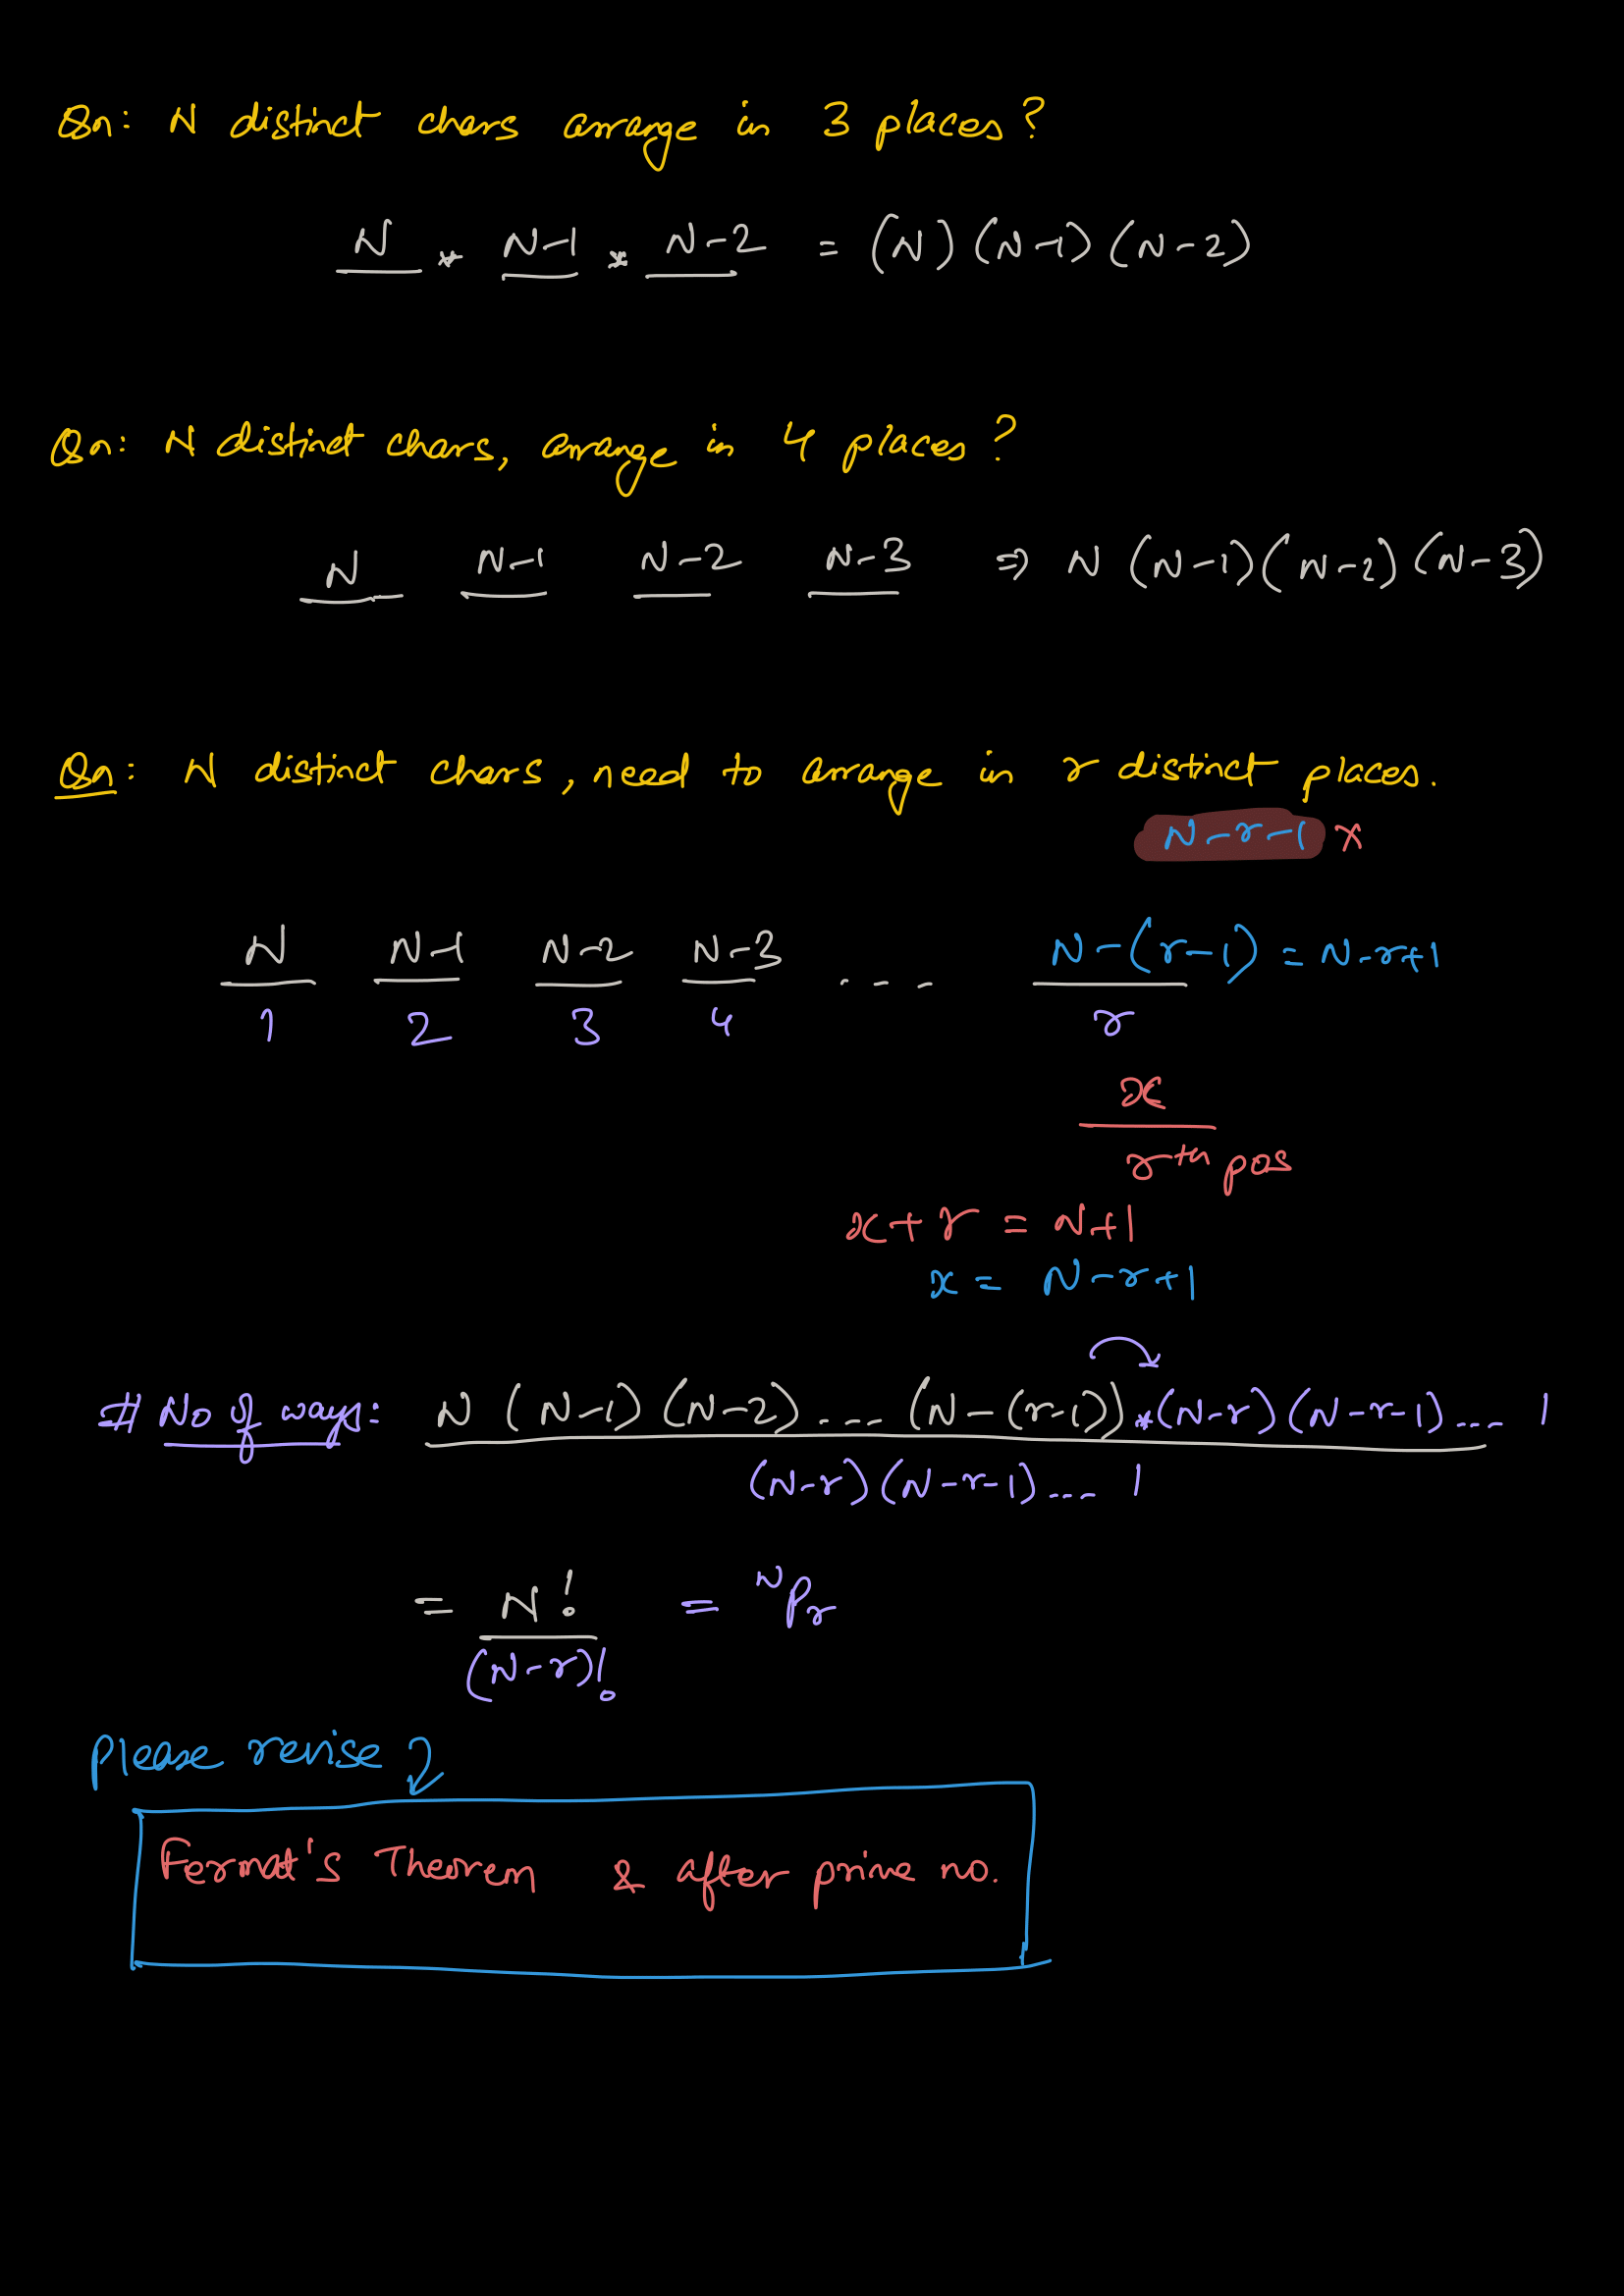 Qn: N distinct chars arrange in 3 places?
N * N-1 * N-2 = (N) (N-1) (N-2)
Qn: N distinct chars, arrange in 4 places?
N N-1 N-2 N-3 ⇒ N (N-1) (N-2) (N-3)
Qn: N distinct chars, need to arrange in r distinct places.
N-r-1 x
N N-1 N-2 N-3 .... N-(r-1) = N-r+1
1 2 3 4 r
x
rth pos
x+r = N+1
x = N-r+1
# No of ways: N (N-1) (N-2) .... (N-(r-1)) * (N-r) (N-r-1) .... 1
(N-r) (N-r-1) .... 1
= N! = ᴺPr
(N-r)!
Please revise
Fermat's Theorem & after prime no.